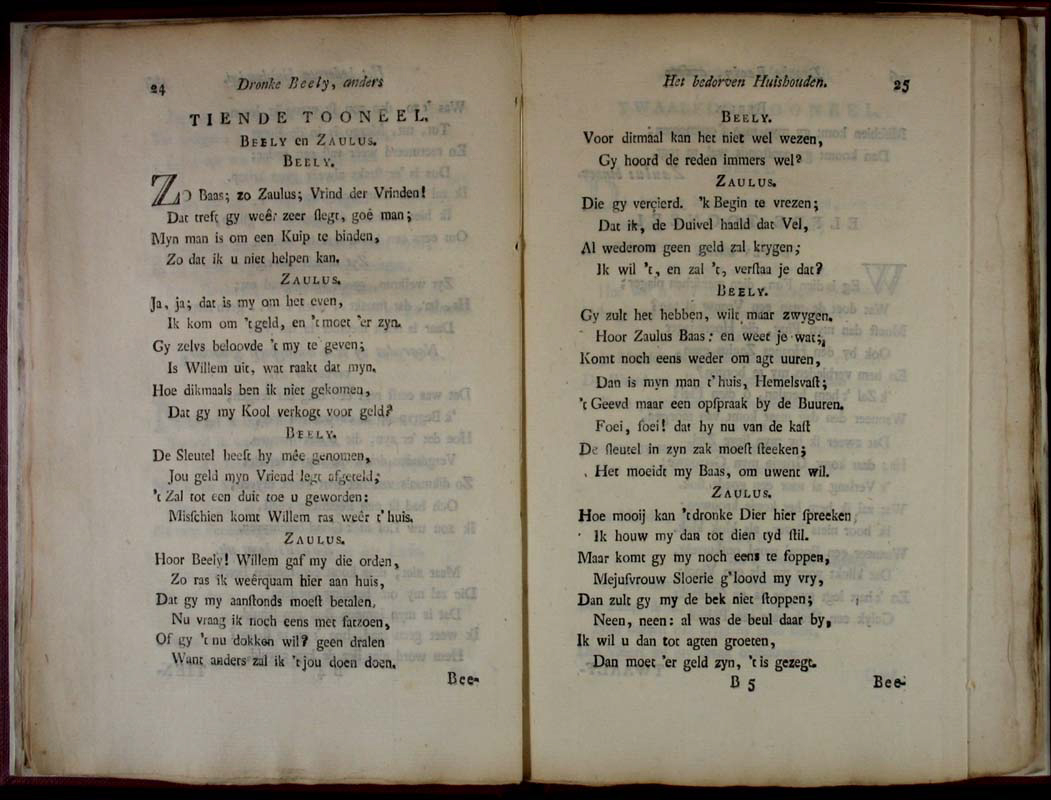 24
Dronke Beely, anders
TIENDE TOONEEL.
BEELY en ZAULUS.
BEELY.
ZO Baas; zo Zaulus; Vrind der Vrinden!
Dat treft gy weêr zeer ſlegt, goê man;
Myn man is om een Kuip te binden,
Zo dat ik u niet helpen kan.
ZAULUS.
Ja, ja; dat is my om het even,
Ik kom om 't geld, en 't moet 'er zyn.
Gy zelvs beloovde 't my te geven;
Is Willem uit, wat raakt dat myn.
Hoe dikmaals ben ik niet gekomen,
Dat gy my Kool verkogt voor geld?
BEELY.
De Sleutel heeft hy mêe genomen,
Jou geld myn Vriend legt afgeteld;
't Zal tot een duit toe u geworden:
Misſchien komt Willem ras weêr t' huis.
ZAULUS.
Hoor Beely! Willem gaf my die orden,
Zo ras ik weêrquam hier aan huis,
Dat gy my aanſtonds moeſt betalen,
Nu vraag ik noch eens met fatzoen,
Of gy 't nu dokken wil? geen dralen
Want anders zal ik 't jou doen doen.
Bee-
Het bedorven Huishouden.
25
BEELY.
Voor ditmaal kan het niet wel wezen,
Gy hoord de reden immers wel?
ZAULUS.
Die gy verçierd. 'k Begin te vrezen;
Dat ik, de Duivel haald dat Vel,
Al wederom geen geld zal krygen;
Ik wil 't, en zal 't, verſtaa je dat?
BEELY.
Gy zult het hebben, wilt maar zwygen.
Hoor Zaulus Baas: en weet je wat;
Komt noch eens weder om agt uuren,
Dan is myn man t' huis, Hemelsvaſt;
't Geevd maar een opſpraak by de Buuren.
Foei, foei! dat hy nu van de kaſt
De ſleutel in zyn zak moeſt ſteeken;
Het moeidt my Baas, om uwent wil.
ZAULUS.
Hoe mooij kan 't dronke Dier hier ſpreeken
Ik houw my dan tot dien tyd ſtil.
Maar komt gy my noch eens te foppen,
Mejufvrouw Sloerie g'loovd my vry,
Dan zult gy my de bek niet ſtoppen;
Neen, neen: al was de beul daar by,
Ik wil u dan tot agten groeten,
Dan moet 'er geld zyn, 't is gezegt.
B 5
Bee-